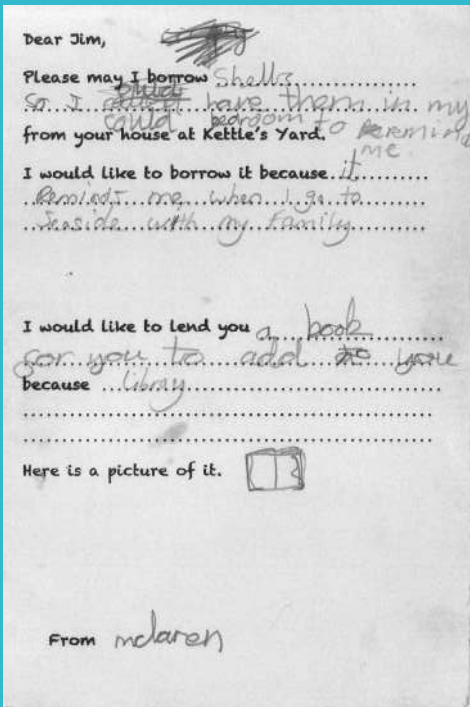 Dear Jim,
Please may I borrow Shells
So I could have them in my
from your house at Kettle's Yard. bedroom to remind
me
I would like to borrow it because it
Reminds me when I go to
Seaside with my Family
I would like to lend you a book
for you to add to your
because libray
Here is a picture of it.
From mclaren